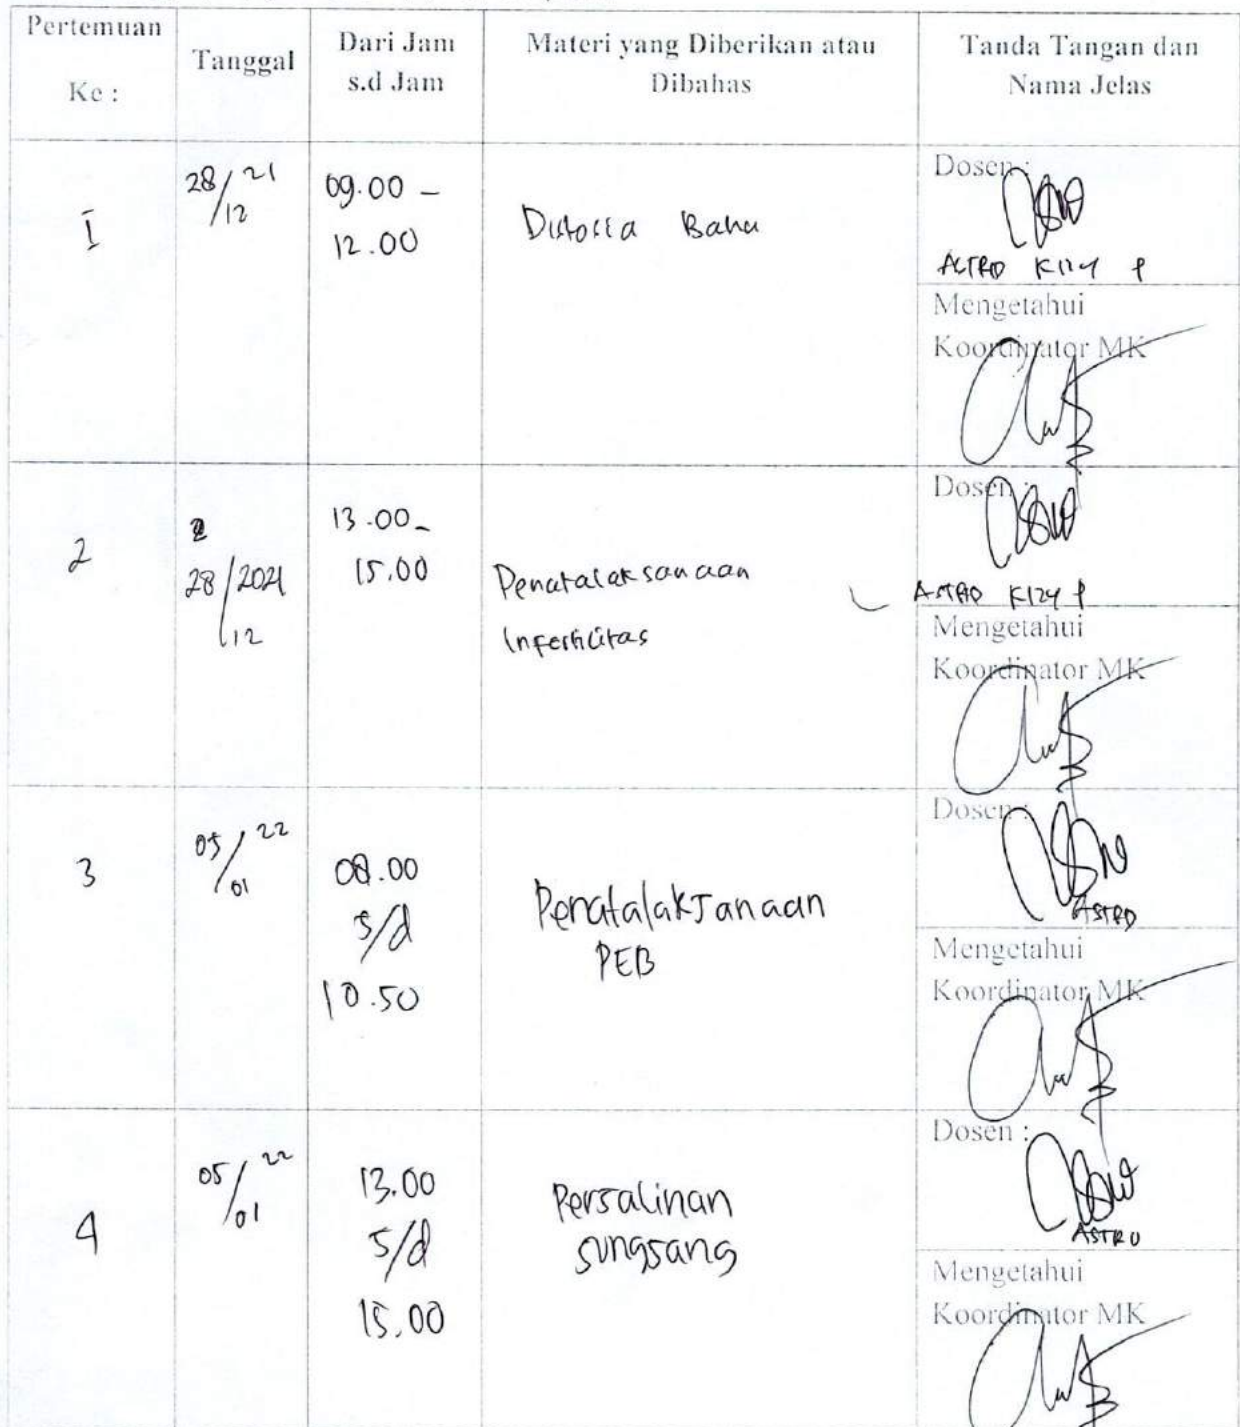 Pertemuan
Ke :
Tanggal
Dari Jam
s.d Jam
Materi yang Diberikan atau
Dibahas
Tanda Tangan dan
Nama Jelas
I
28/12 21
09.00 –
12.00
Distosia Bahu
Dosen :
ASTRO KIZY P
Mengetahui
Koordinator MK
2
28/2021
12
13.00-
15.00
Penatalaksanaan
Infertilitas
Dosen :
ASTRO KIZY P
Mengetahui
Koordinator MK
3
05/01 22
08.00
s/d
10.50
Penatalaksanaan
PEB
Dosen :
ASTRO
Mengetahui
Koordinator MK
4
05/01 22
13.00
s/d
15.00
Persalinan
sungsang
Dosen :
ASTRO
Mengetahui
Koordinator MK